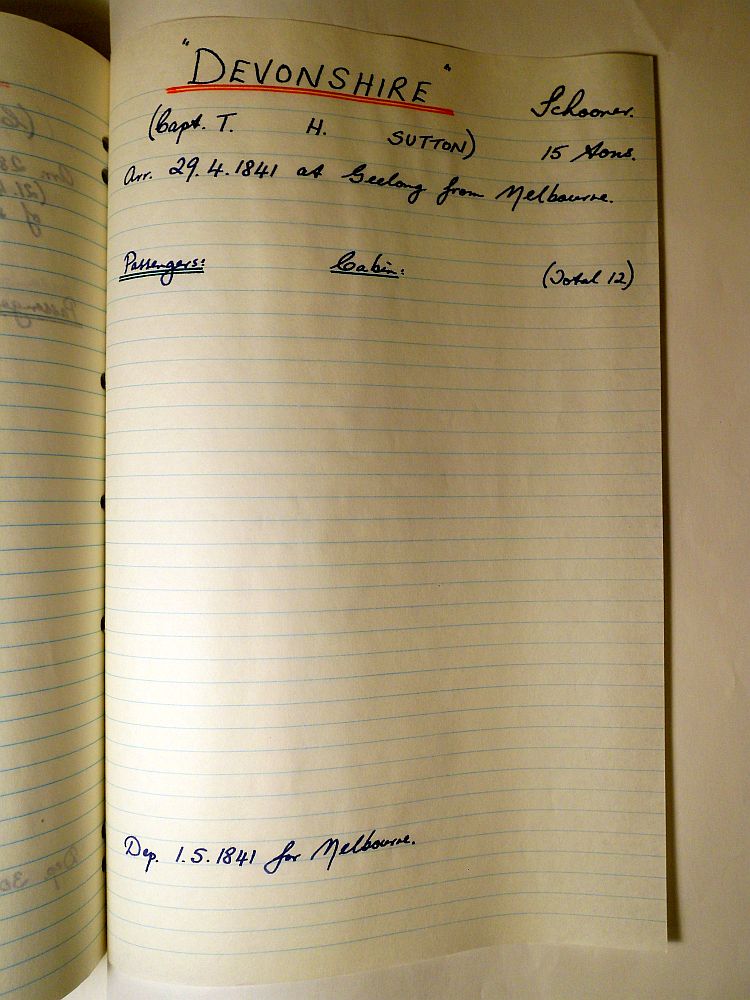 "DEVONSHIRE" Schooner.
(Capt. T. H. SUTTON) 15 tons.
Arr. 29.4.1841 at Geelong from Melbourne.
Passengers: Cabin: (Total 12)
Dep. 1.5.1841 for Melbourne.